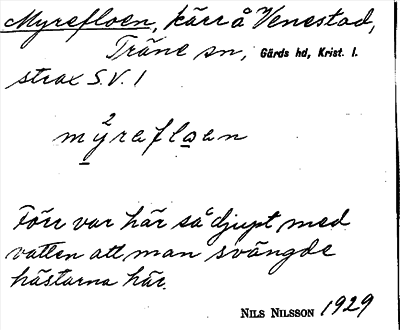 Myrefloen, kärr å Venestad,
Träne sn, Gärds hd, Krist. l.
strax S.V. 1
2
myrefloen
Förr var här så djupt med
vatten att man svängde
hästarna här.
NILS NILSSON 1929